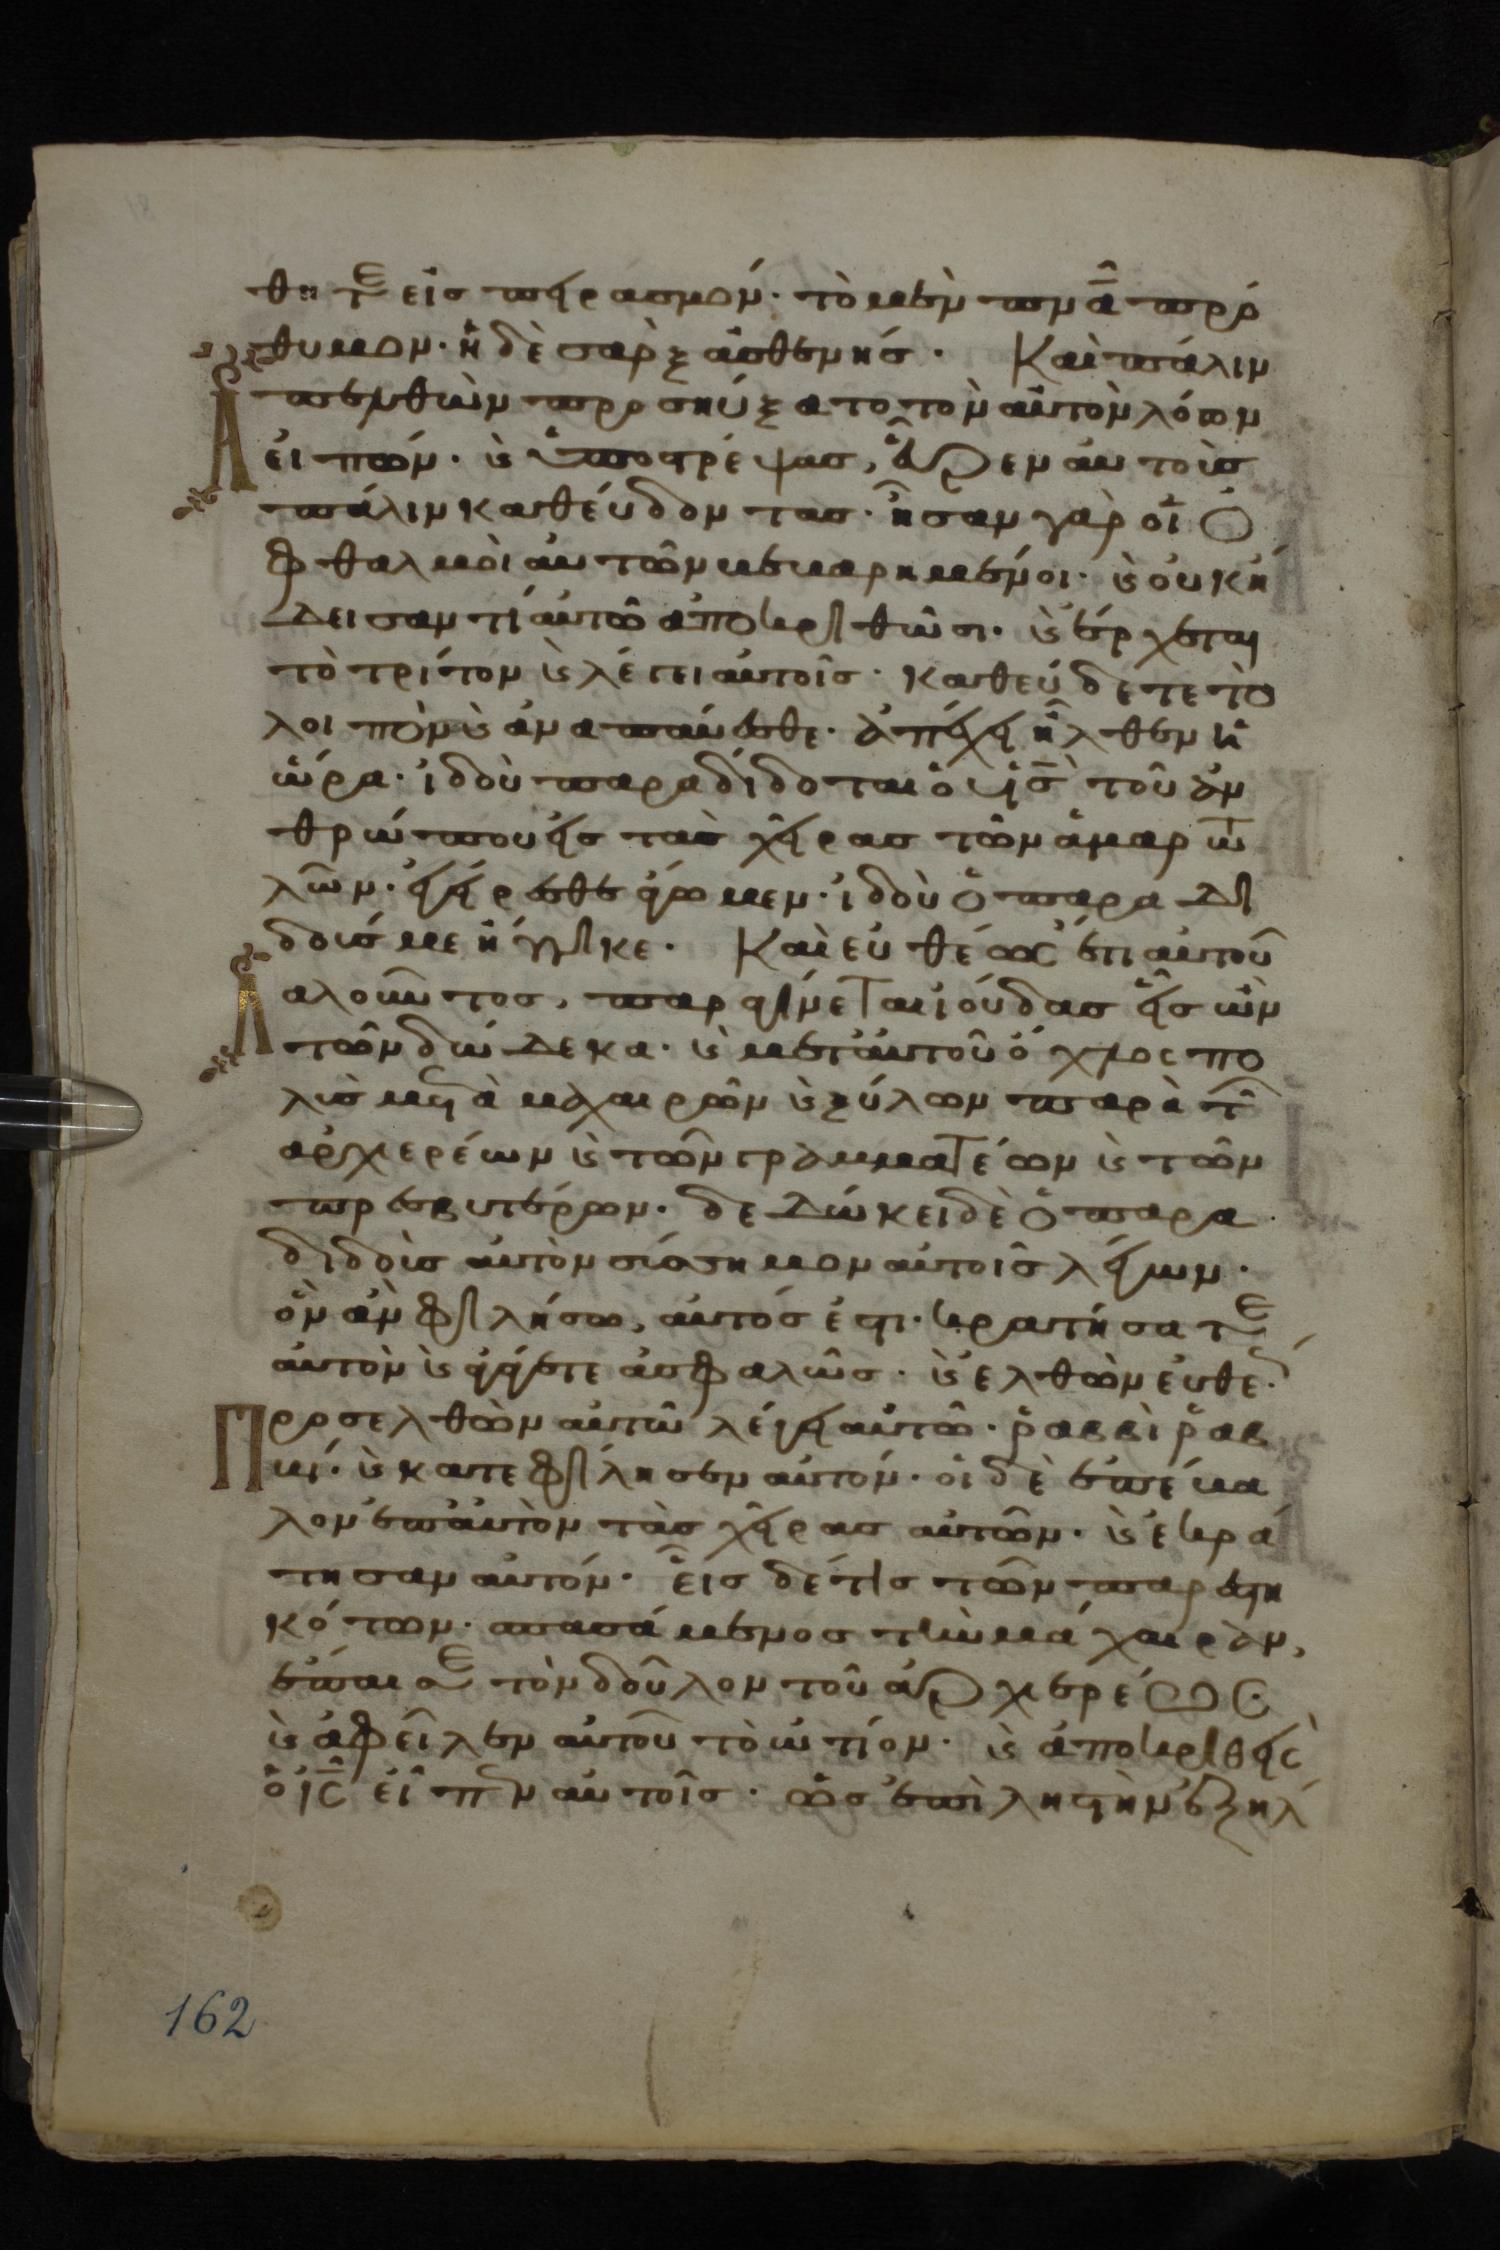 θητε εἰς πειρασμόν· τὸ μὲν πνᾶ πρό
θυμον· ἡ δὲ σὰρξ ἀσθενής· Καὶ πάλιν
Ἀπελθὼν προσηύξατο τὸν αὐτὸν λόγον
εἰπών· καὶ ὑποστρέψας, εὗρεν αὐτοὺς
πάλιν καθεύδοντας· ἦσαν γὰρ οἱ ὀ
φθαλμοὶ αὐτῶν βεβαρημένοι· καὶ οὐκ ἤ
δεισαν τί αὐτῶ ἀποκριθῶσι· καὶ ἔρχεται
τὸ τρίτον καὶ λέγει αὐτοῖς· καθεύδετε τὸ
λοιπὸν καὶ ἀναπαύεσθε· ἀπέχει ἦλθεν ἡ
ὥρα· ἰδοὺ παραδίδοται ὁ υἱς τοῦ ἀν
θρώπου εἰς τὰς χεῖρας τῶν ἁμαρτω
λῶν· ἐγείρεσθε ἄγωμεν· ἰδοὺ ὁ παραδι
δούς με ἤγγικε· Καὶ εὐθέως ἔτι αὐτοῦ
Λαλοῦντος, παραγίνεται ἰούδας εἷς ὢν
τῶν δώδεκα· καὶ μετ' αὐτοῦ ὄχλος πο
λὺς μετὰ μαχαιρῶν καὶ ξύλων παρὰ τῶν
ἀρχιερέων καὶ τῶν γραμματέων καὶ τῶν
πρεσβυτέρων· δεδώκει δὲ ὁ παρα
διδοὺς αὐτὸν σύσσημον αὐτοῖς λέγων·
ὃν ἂν φιλήσω, αὐτός ἐστι· κρατήσατε
αὐτὸν καὶ ἀπάγετε ἀσφαλῶς· καὶ ἐλθὼν εὐθέως
Προσελθὼν αὐτῶ λέγει αὐτῶ· ῥαββὶ ῥαβ
βί· καὶ κατεφίλησεν αὐτόν· οἱ δὲ ἐπέβα
λον ἐπ' αὐτὸν τὰς χεῖρας αὐτῶν· καὶ ἐκρά
τησαν αὐτόν· εἷς δέ τις τῶν παρεστη
κότων· σπασάμενος τὴν μάχαιραν,
ἔπαισε τὸν δοῦλον τοῦ ἀρχιερέως
καὶ ἀφεῖλεν αὐτοῦ τὸ ὠτίον· καὶ ἀποκριθεὶς
ὁ ἰς εἶπεν αὐτοῖς· ὡς ἐπὶ λῃστὴν ἐξήλ
162